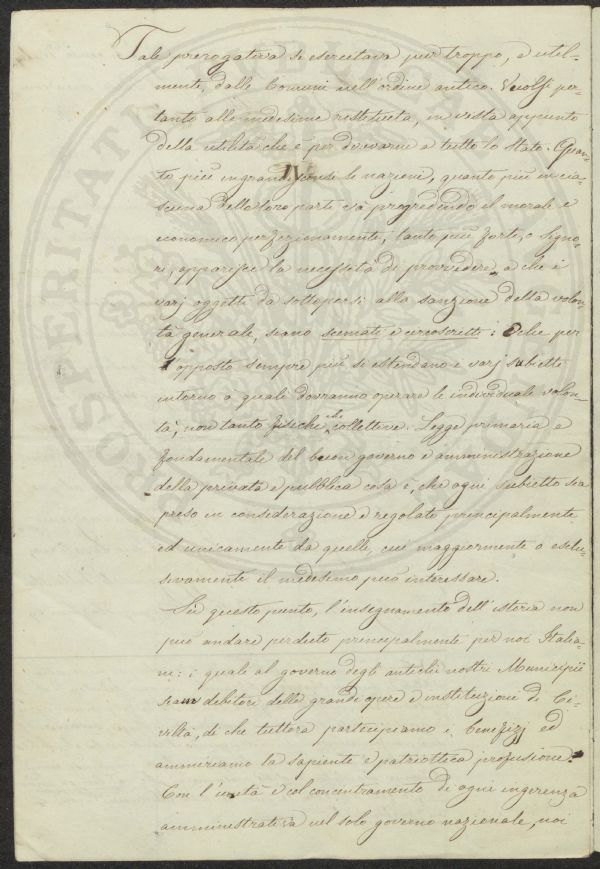 Tale prerogativa si esercitava pur troppo, e util-
mente, dalle Comuni nell'ordine antico. Vuolsi per-
tanto alle medesime restituita, in vista appunto
della utilità che è per derivarne a tutto lo Stato. Quan-
to più ingrandisconsi le nazioni, quanto più in cia-
scuna delle loro parti và progredendo il morale e
economico perfezionamento, tanto più forte, o Signo-
ri, apparisce la necessità di provvedere, a che i
varj oggetti da sottoporsi alla sanzione della volon-
tà generale, siano scemati e circoscritti: e che per
l'opposto sempre più si estendano i varj subietti
intorno a quali dovranno operare le individuali volon-
tà, non tanto fisiche che collettive. Legge primaria e
fondamentale del buon governo e amministrazione
della privata e pubblica cosa è, che ogni subietto sia
preso in considerazione e regolato principalmente
ed unicamente da quelli, cui maggiormente o esclu-
sivamente il medesimo può interessare.
Su questo punto, l'insegnamento dell'istoria non
può andare perduto principalmente per noi Italia-
ni: i quali al governo degli antichi nostri Municipii
siam debitori delle grandi opere e instituzioni di Ci-
viltà, di che tuttora partecipiamo i benefizj ed
ammiriamo la sapiente e patriottica profusione.
Con l'unità e col concentramento di ogni ingerenza
amministrativa nel solo governo nazionale, noi
PROSPERITATI